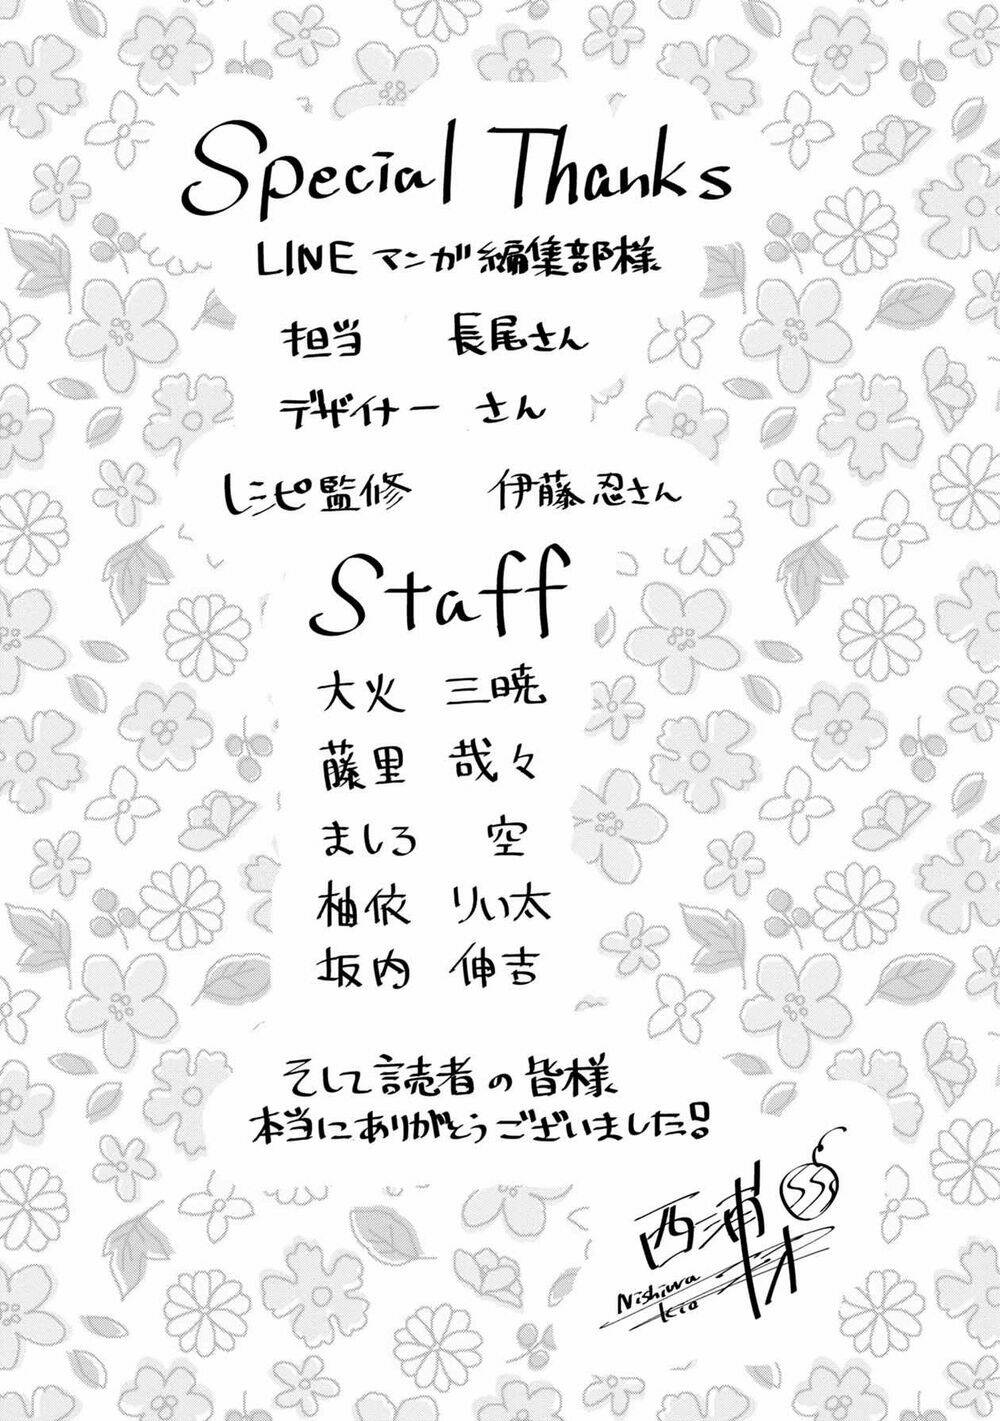 Special Thanks
LINE マンガ編集部様
担当 長尾さん
デザイナー さん
レシピ監修 伊藤 忍さん
Staff
大火 三暁
藤里 哉々
ましろ 空
柚依 りい太
坂内 伸吉
そして読者の皆様
本当にありがとうございました!
西浦キオ
Nishiura
kio